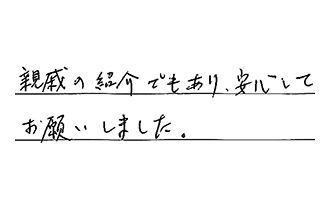 親戚の紹介でもあり、安心して
お願いしました。